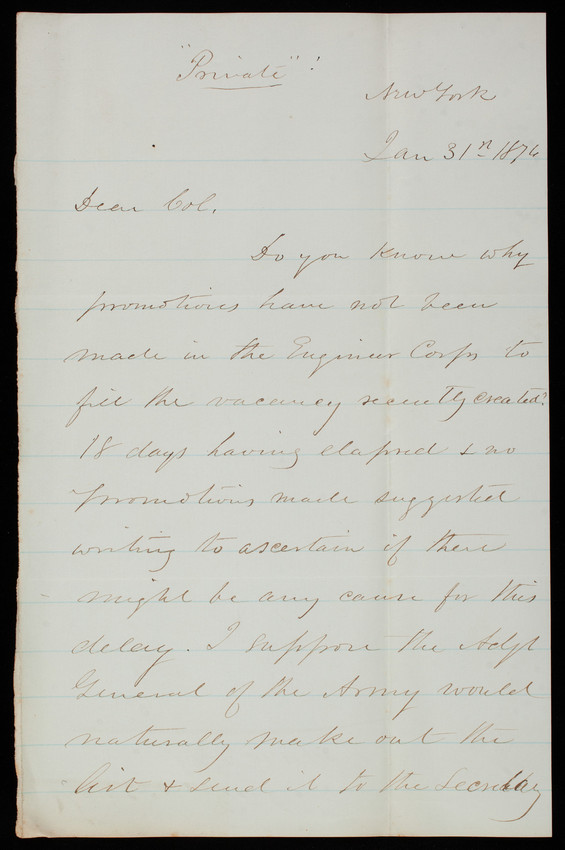 "Private"!
New York
Jan 31st 1876
Dear Col.
Do you know why
promotions have not been
made in the Engineer Corps to
fill the vacancy recently created?
18 days having elapsed & no
promotions made suggested
writing to ascertain if there
might be any cause for this
delay. I suppose the Adjt
General of the Army would
naturally make out the
list & send it to the Secretary